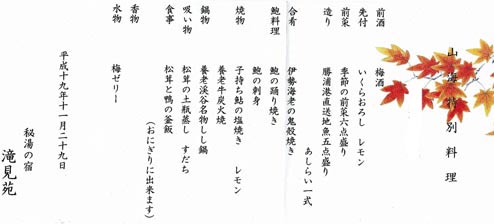 山海特別料理
前酒　梅酒
先付　いくらおろし　レモン
前菜　季節の前菜六点盛り
造り　勝浦港直送地魚五点盛り
あしらい一式
合肴　伊勢海老の鬼殻焼き
鮑料理　鮑の踊り焼き
鮑の刺身
焼物　子持ち鮎の塩焼き　レモン
養老牛炭火焼
鍋物　養老渓谷名物しし鍋
吸い物　松茸の土瓶蒸し　すだち
食事　松茸と鴨の釜飯
（おにぎりに出来ます）
香物
水物　梅ゼリー
平成十九年十一月二十九日
秘湯の宿
滝見苑